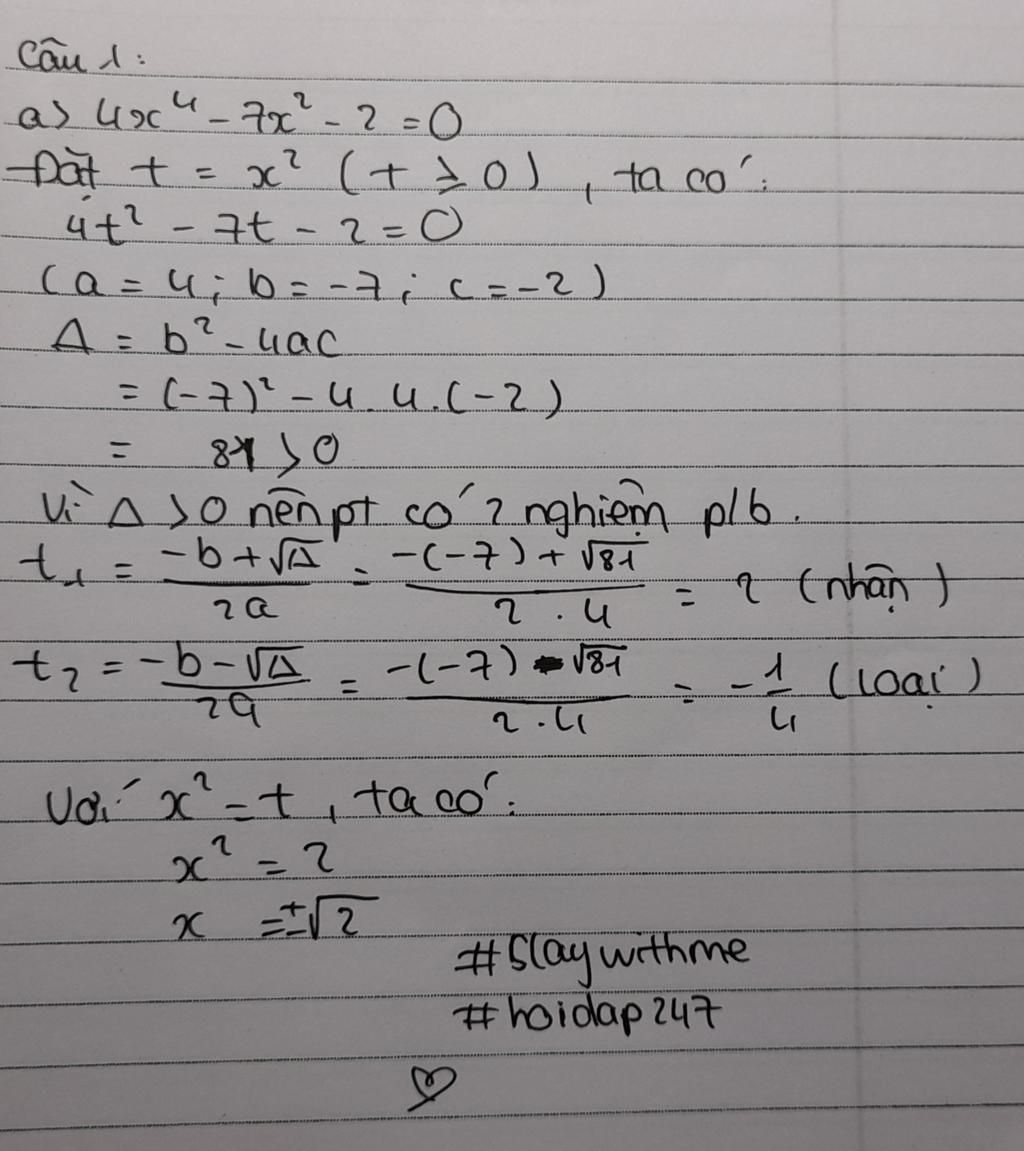 Câu 1:
a> 4x⁴ - 7x² - 2 = 0
Đặt t = x² (t ≥ 0), ta có:
4t² - 7t - 2 = 0
(a = 4; b = -7; c = -2)
Δ = b² - 4ac
= (-7)² - 4.4.(-2)
= 81 > 0
Vì Δ > 0 nên pt có 2 nghiệm p/b.
t₁ = (-b + √Δ)/(2a) = (-(-7) + √81)/(2.4) = 2 (nhận)
t₂ = (-b - √Δ)/(2a) = (-(-7) - √81)/(2.4) = -1/4 (loại)
Với x² = t, ta có:
x² = 2
x = ±√2
#Slaywithme
#hoidap247